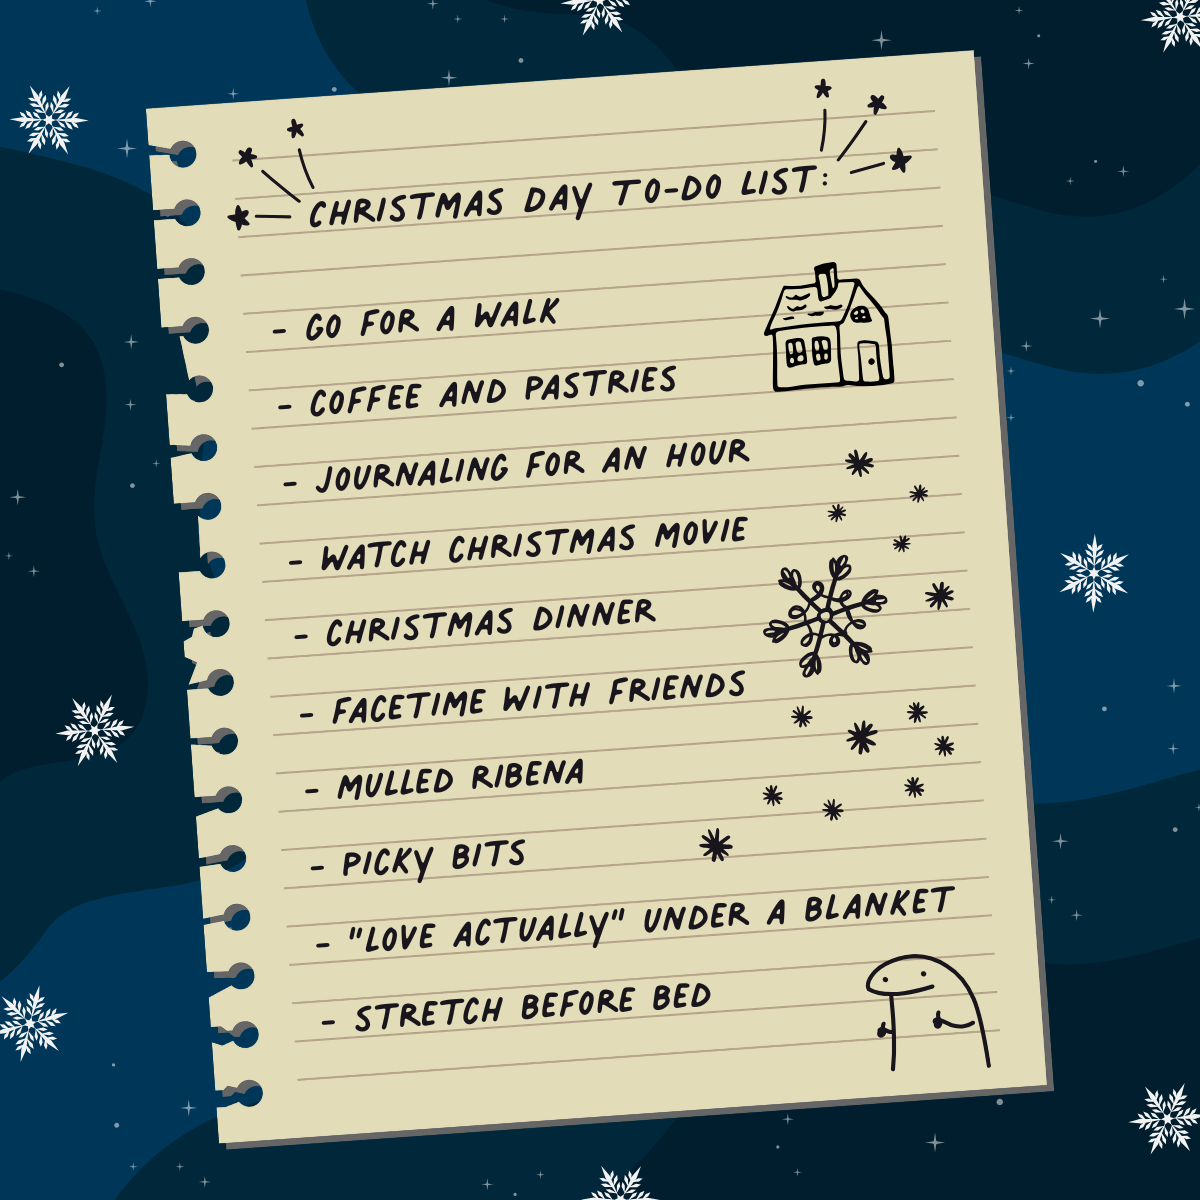 CHRISTMAS DAY TO-DO LIST:
- GO FOR A WALK
- COFFEE AND PASTRIES
- JOURNALING FOR AN HOUR
- WATCH CHRISTMAS MOVIE
- CHRISTMAS DINNER
- FACETIME WITH FRIENDS
- MULLED RIBENA
- PICKY BITS
- "LOVE ACTUALLY" UNDER A BLANKET
- STRETCH BEFORE BED